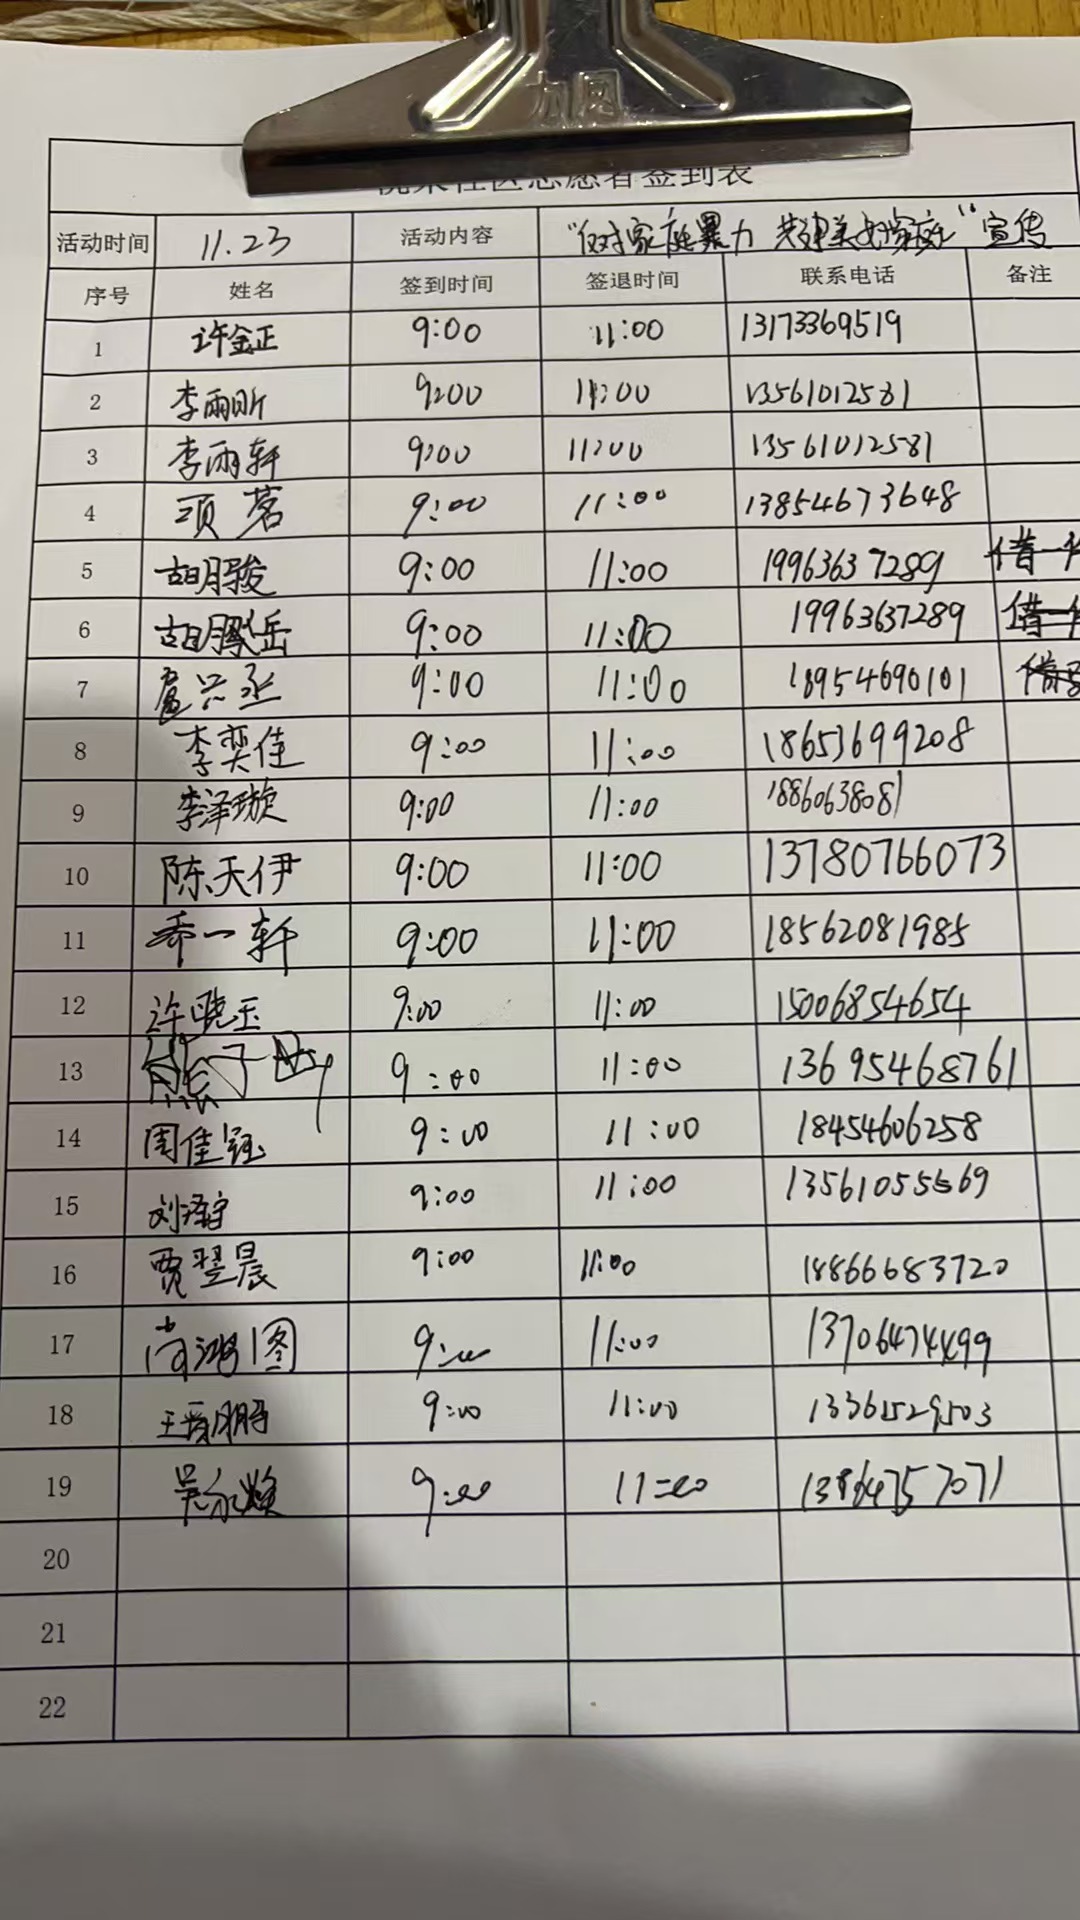 加风
社区志愿者签到表
活动时间 11.23 活动内容 "反对家庭暴力 共建美好家庭"宣传
序号 姓名 签到时间 签退时间 联系电话 备注
1 许金正 9:00 11:00 13173369519
2 李雨昕 9:00 11:00 13561012581
3 李雨轩 9:00 11:00 13561012581
4 项茗 9:00 11:00 13854673648
5 胡明骏 9:00 11:00 19963637289
6 胡鹏岳 9:00 11:00 19963637289
7 9:00 11:00 18954690101
8 李奕佳 9:00 11:00 18653699208
9 李泽璇 9:00 11:00 18860638081
10 陈天伊 9:00 11:00 13780766073
11 乔一轩 9:00 11:00 18562081985
12 许晓玉 9:00 11:00 15006854654
13 熊子 9:00 11:00 13695468761
14 周佳钰 9:00 11:00 18454606258
15 刘泽宇 9:00 11:00 13561055569
16 贾翌晨 9:00 11:00 18866683720
17 尚鸿图 9:00 11:00 13706474499
18 王 鹏 9:00 11:00 13361529503
19 吴 焕 9:00 11:00 13864757071
20
21
22